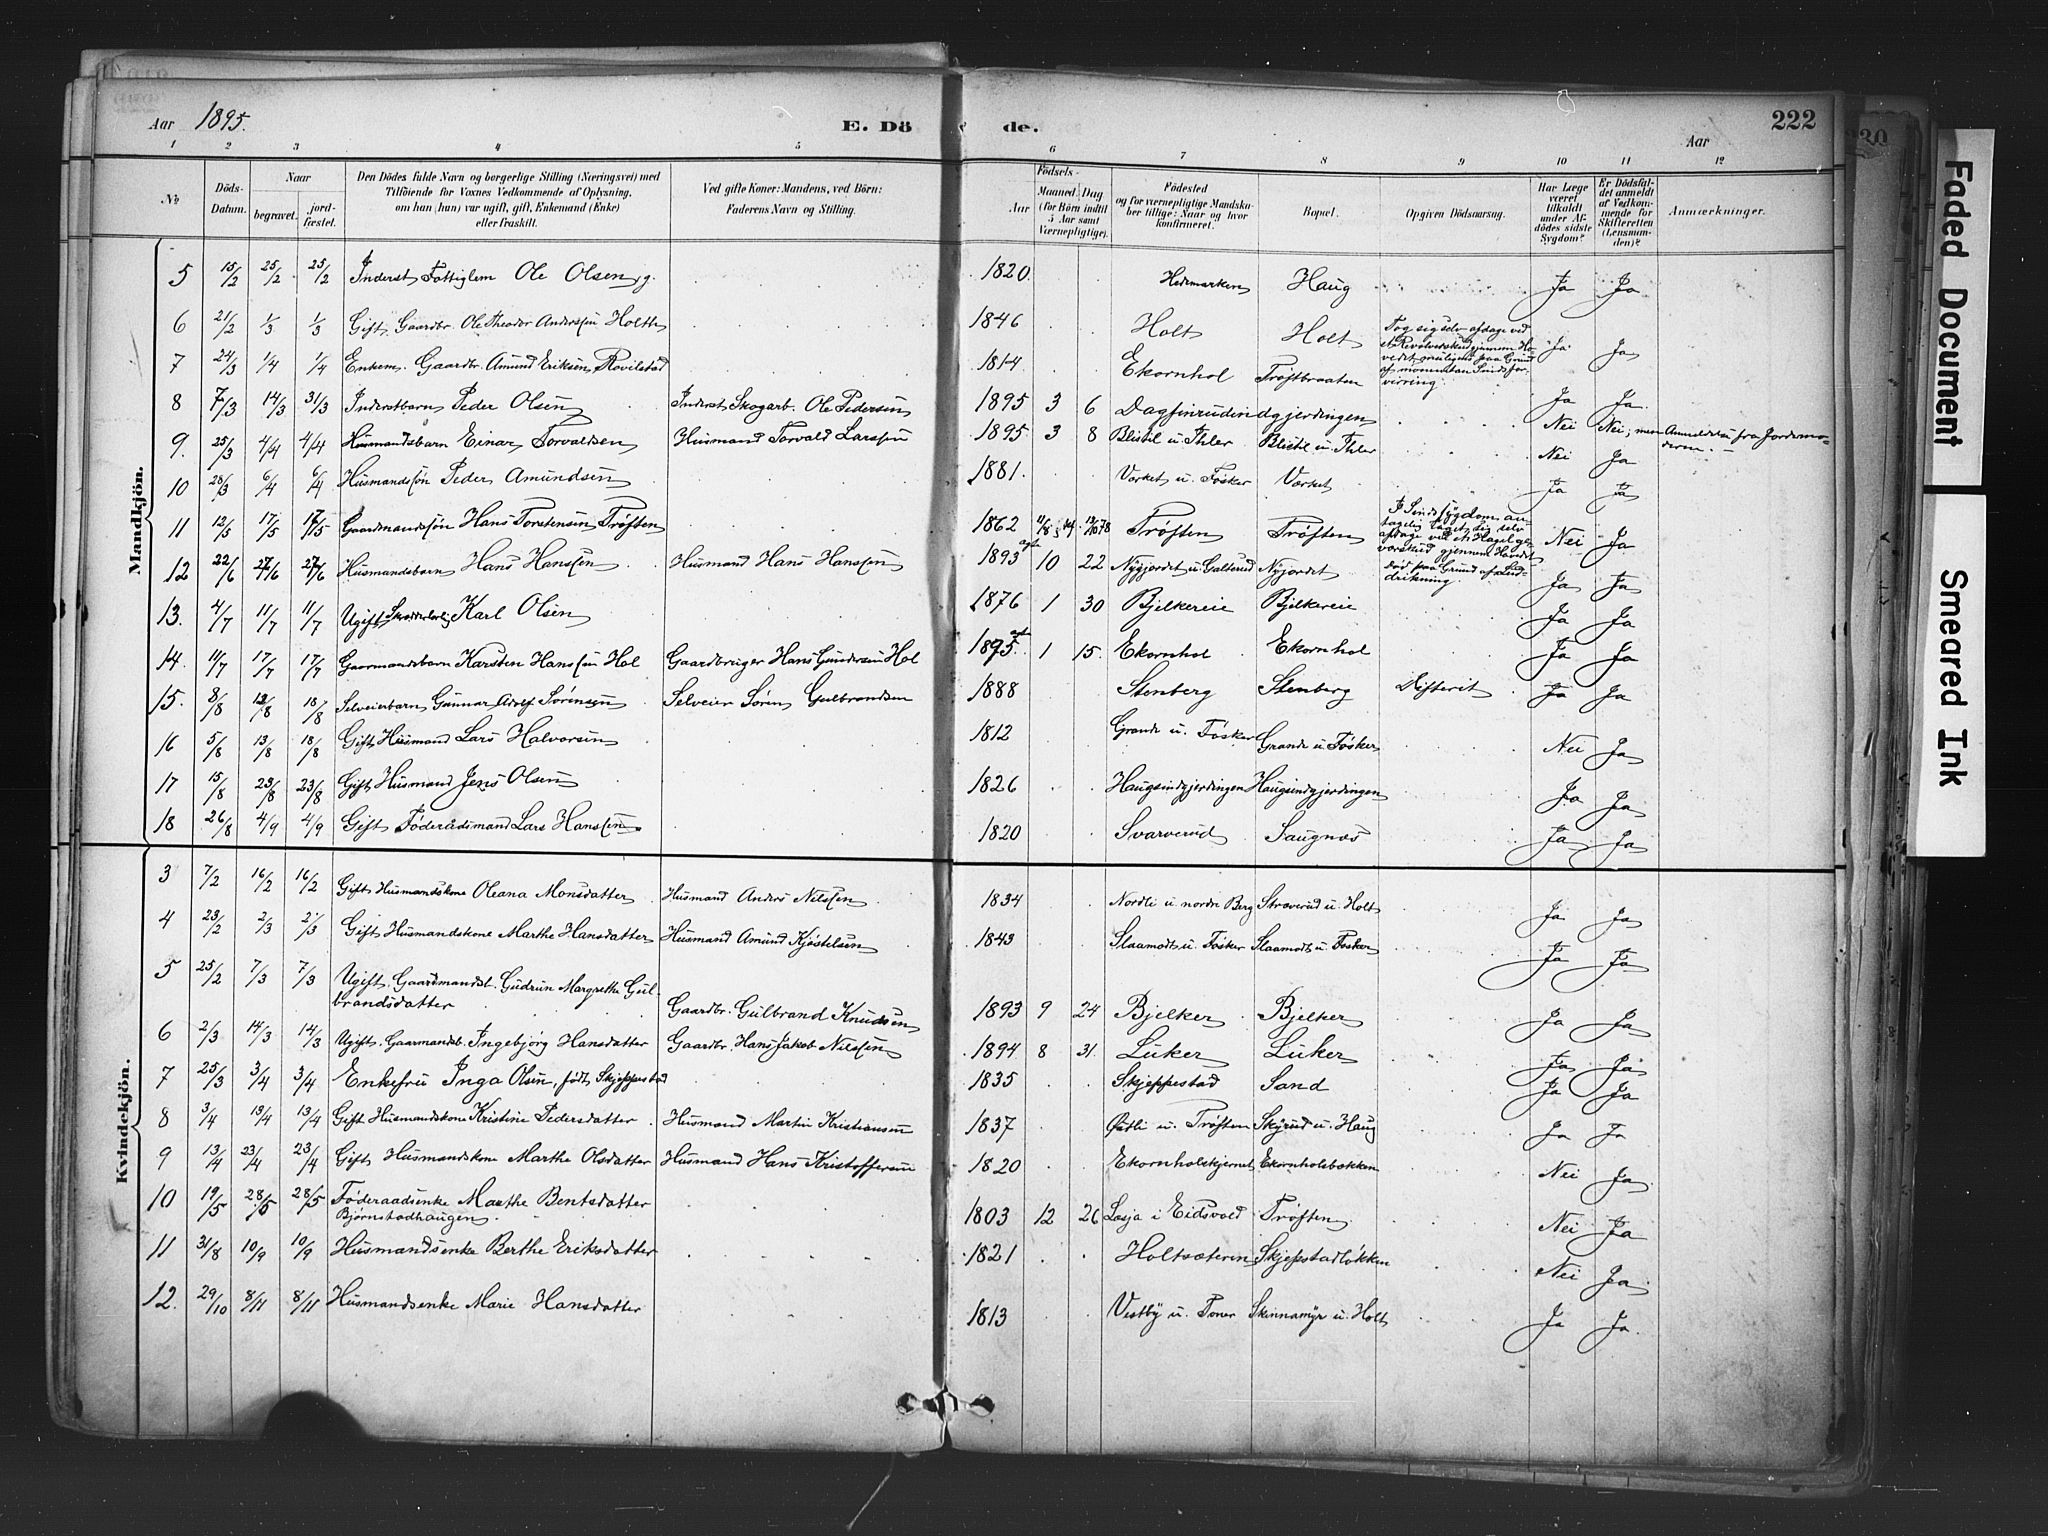 Aar 1895.
E. Dö de.
222
Aar
1 2 3 4 5 6 7 8 9 10 11 12
No.
Döds-Datum.
Naar
begravet.
jord-fæstet.
Den Dödes fulde Navn og borgerlige Stilling (Næringsvei) med
Tilföiende for Voxnes Vedkommende af Oplysning,
om han (hun) var ugift, gift, Enkemand (Enke)
eller fraskilt.
Ved gifte Koner: Mandens, ved Börn:
Faderens Navn og Stilling.
Födsels-
Aar
Maaned. Dag
(for Börn indtil
5 Aar samt
Værnepligtige).
Födested
og for værnepligtige Mandska-
ber tillige: Naar og hvor
konfirmeret.
Bopæl.
Opgiven Dödsaarsag.
Har Læge
været
tilkaldt
under Af-
dödes sidste
Sygdom?
Er Dödsfal-
det anmeldt
af Vedkom-
mende for
Skifteretten
(Lensman-
den)?
Anmærkninger.
Mandkjön.
5 15/2 25/2 25/2 Inderst Fattiglem Ole Olsen, g. 1820 Hedemarken Haug Ja Ja
6 21/2 1/3 1/3 Gift Gaardbr. Ole Theodor Anderssen Holth 1846 Holt Holt Tog sig selv afdage ved et Revolverskud gjennem Hovedet muligens paa Grund af momentan Sindsforvirring. Ja Ja
7 24/3 1/4 1/4 Enkem. Gaardbr. Amund Eriksen Rovilstad 1814 Ekornhol Trøftbraaten Ja Ja
8 7/3 14/3 31/3 Inderstbarn Peder Olsen Inderst Skogarb. Ole Pedersen 1895 3 6 Dagfinrudindgjerdingen Nei Nei; men Anmeldelse fra Jordemoderen.
9. 25/3 4/4 4/4 Husmandsbarn Einar Torvaldsen Husmand Torvald Larssen 1895 3 8 Blistil u. Thler Blistil u. Thler Nei Ja
10 28/3 6/4 6/4 Husmandssøn Peder Amundsen 1881. Værket u. Fosker Værket Ja Ja
11 12/5 17/5 17/5 Gaardmandssøn Hans Torstensen Trøften 1862 Trøften Trøften I Sindssygdom antagelig taget sig selv afdage ved et Hagelgeværskud gjennem Hovedet Nei Ja
12 22/6 27/6 27/6 Husmandsbarn Hans Hanssen Husmand Hans Hanssen 1893 10 22 Nyjordet u. Galterud Nyjordet død paa Grund af Luddrikning Ja Ja
13. 4/7 11/7 11/7 Ugift Karl Olsen 1876 1 30 Bjelkereie Bjelkereie Ja Ja
14. 11/7 17/7 17/7 Gaarmandsbarn Karsten Hanssen Hol Gaardbruger Hans Gundersen Hol 1895. 1 15. Ekornhol Ekornhol Ja Ja
15. 8/8 18/8 18/8 Selveierbarn Gunnar Adolf Sørensen Selveier Sören Gulbrandsen 1888 Stenberg Stenberg Difterit Ja Ja
16 5/8 13/8 18/8 Gift Husmand Lars Halvorsen 1812 Grande u. Fosker Grande u. Fosker Nei Ja
17 15/8 23/8 23/8 Gift Husmand Jens Olsen 1826 Haugsindgjerdingen Haugsindgjerdingen Ja Ja
18 26/8 4/9 4/9 Gift Föderådsmand Lars Hanssen 1820 Svarverud Saugnæs Ja Ja
Kvindekjön.
3 7/2 16/2 16/2 Gift Husmandskone Oleana Monsdatter Husmand Anders Nilssen 1834 Nordli u. nordre Berg Straverud u. Holt Ja Ja
4 23/2 2/3 2/3 Gift Husmandskone Marthe Hansdatter Husmand Amund Kjöstelsen 1843 Slaamodt u. Fosker Slaamodt u. Fosker Ja Ja
5 25/2 7/3 7/3 Ugift. Gaardmandst. Gudrun Margrethe Gul-
brandsdatter Gaardbr. Gulbrand Knudsen 1893 9 24 Bjelker Bjelker Ja Ja
6 2/3 14/3 14/3 Ugift. Gaarmandsb. Ingebjörg Hansdatter Gaardbr. Hans Jakob Nilssen 1894 8 31. Luker Luker Ja Ja
7 25/3 3/4 3/4 Enkefru Inga Olsen, født Skjeppestad 1835 Skjeppestad Sand Ja Ja
8 3/4 13/4 13/4 Gift Husmandskone Kristine Pedersdatter Husmand Martin Kristiansen 1837 u. Trøften Skjrud u. Haug Ja Ja
9 13/4 23/4 23/4 Gift Husmandskone Marthe Olsdatter Husmand Hans Kristoffersen 1820 Ekornholskjernet Ekornholsbækken Nei Ja
10 19/5 28/5 28/5 Föderaadsenke Marthe Bentsdatter
Bjørnstadhaugen. 1803 12 26 Læsja i Eidsvold Trøften Nei Ja
11 31/8 10/9 10/9 Husmandsenke Berthe Eriksdatter 1821 Holtsæteren Skjepstadløkken Nei Ja
12. 29/10 8/11 8/11 Husmandsenke Marie Hansdatter 1813 Vestby u. Toner Skinnamyr u. Holt Ja Ja.
230
Faded Document
Smeared Ink